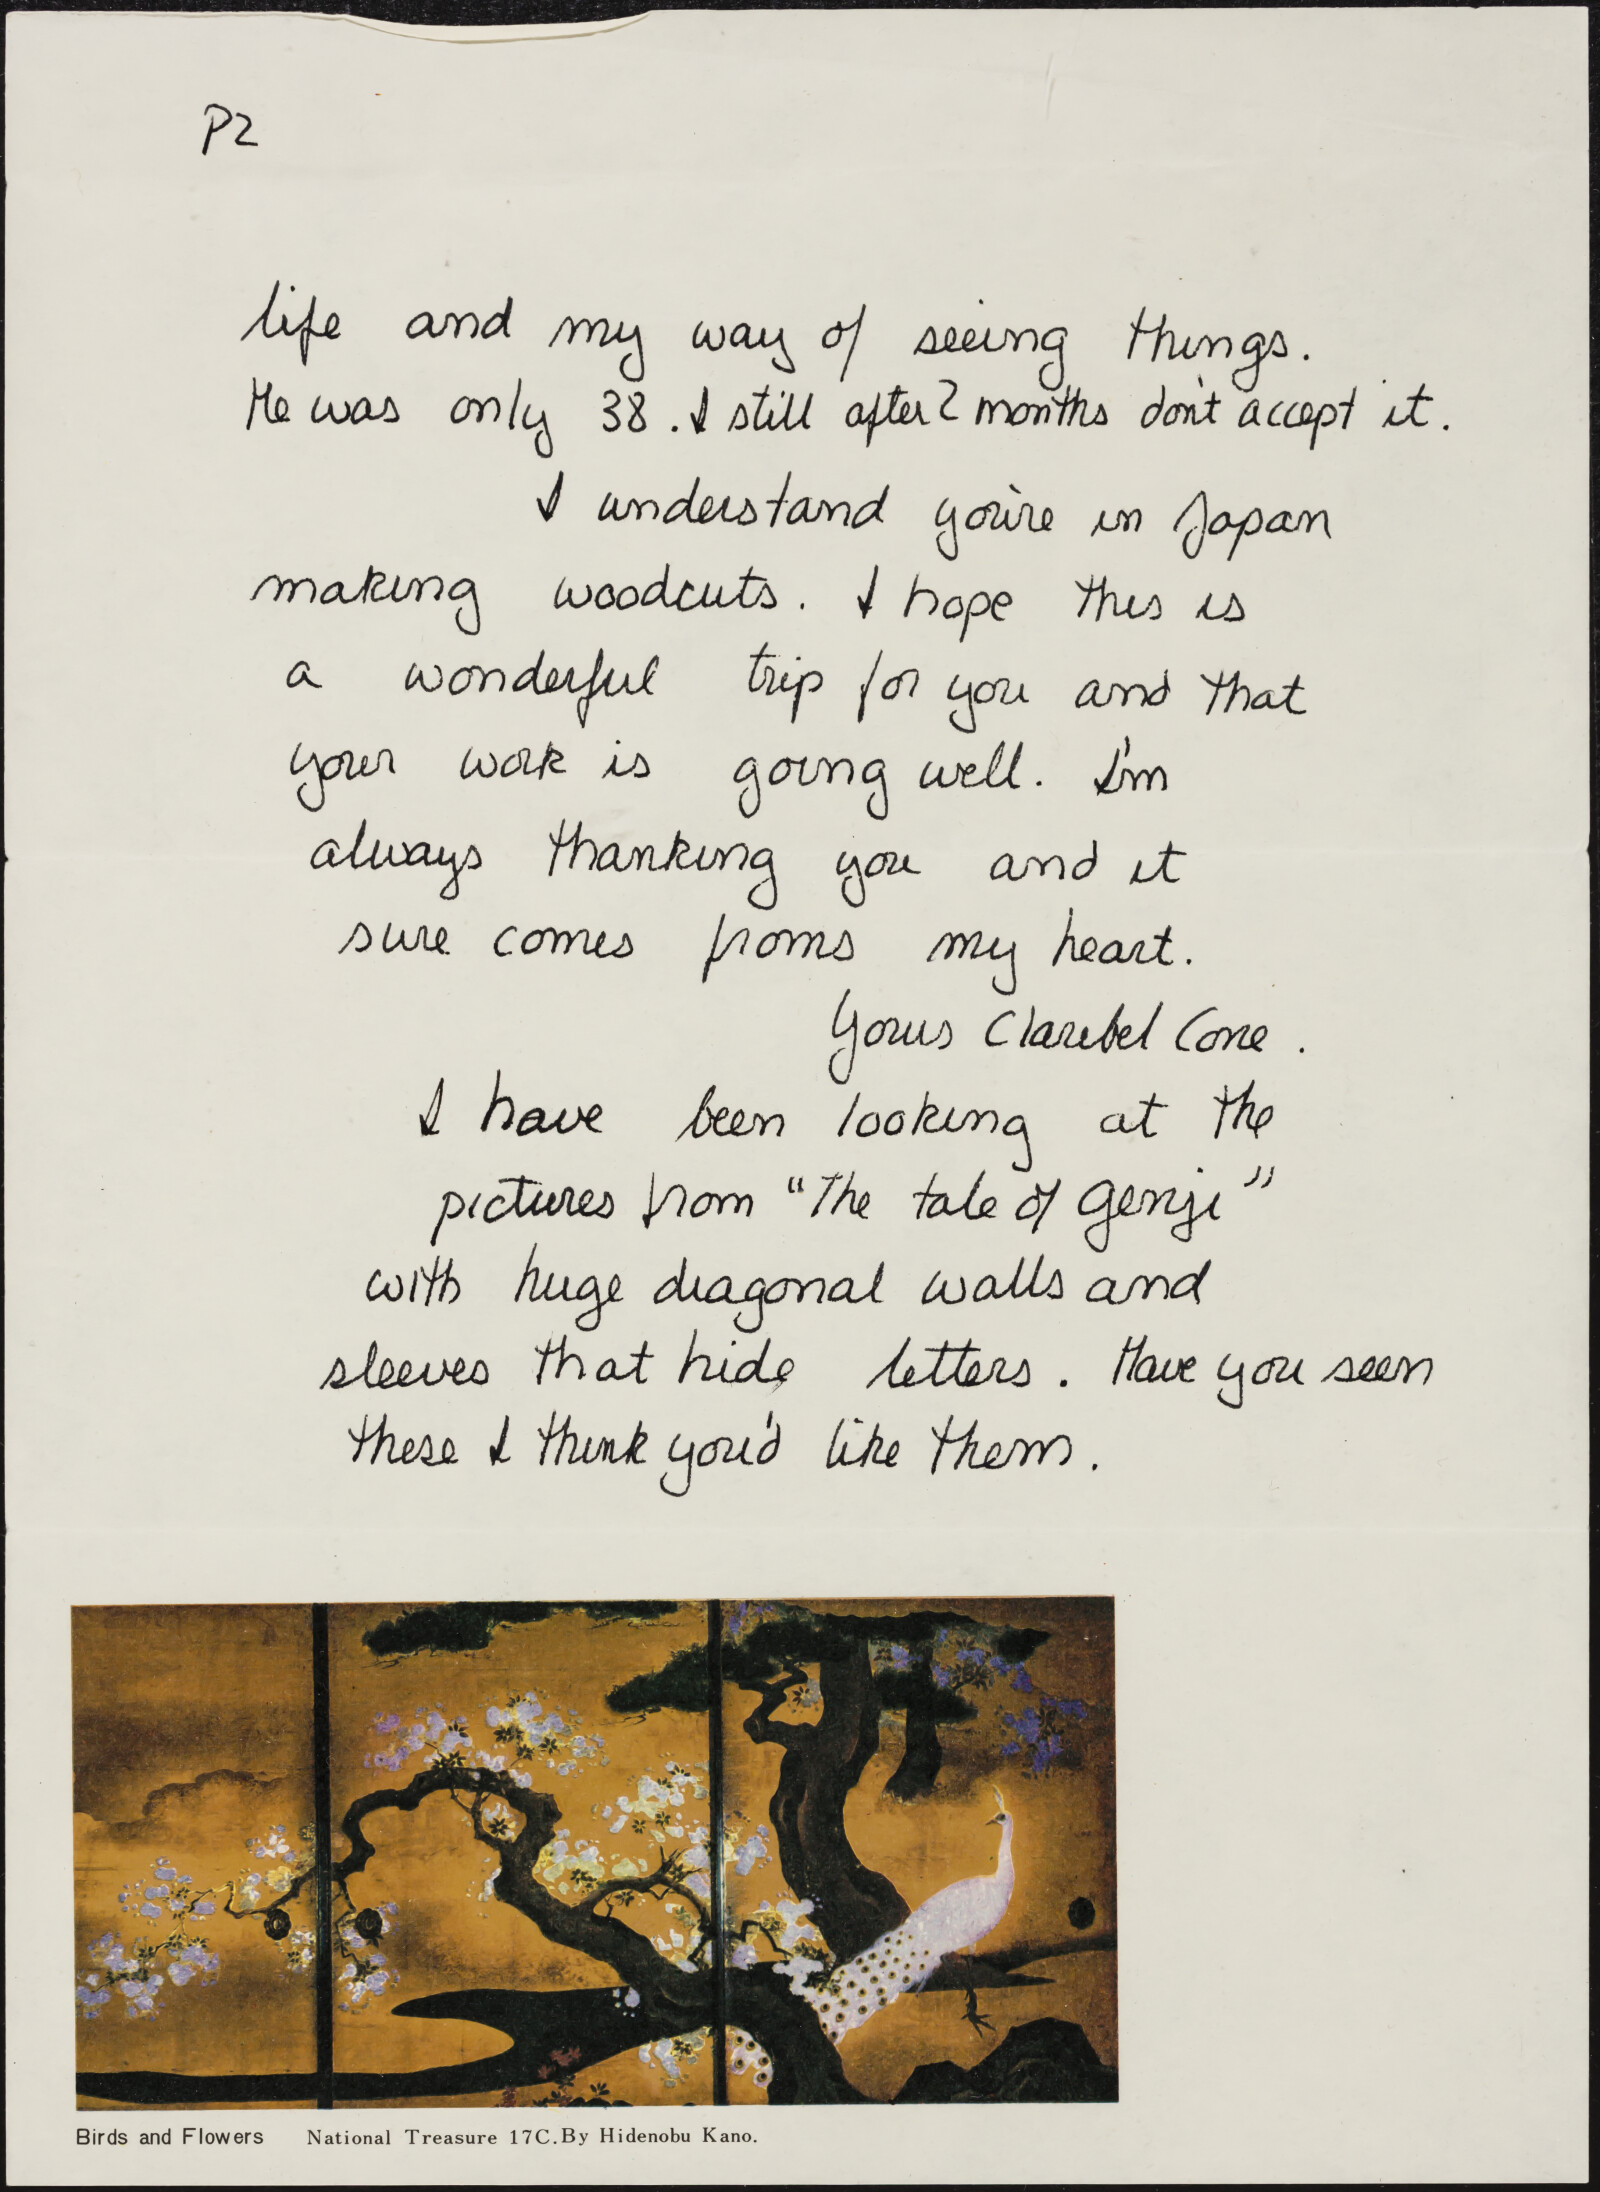 P2
life and my way of seeing things.
He was only 38. I still after 2 months don't accept it.
I understand you're in Japan
making woodcuts. I hope this is
a wonderful trip for you and that
your work is going well. I'm
always thanking you and it
sure comes from my heart.
Yours Claribel Cone.
I have been looking at the
pictures from "The tale of Genji"
with huge diagonal walls and
sleeves that hide letters. Have you seen
these I think you'd like them.
Birds and Flowers National Treasure 17C.By Hidenobu Kano.